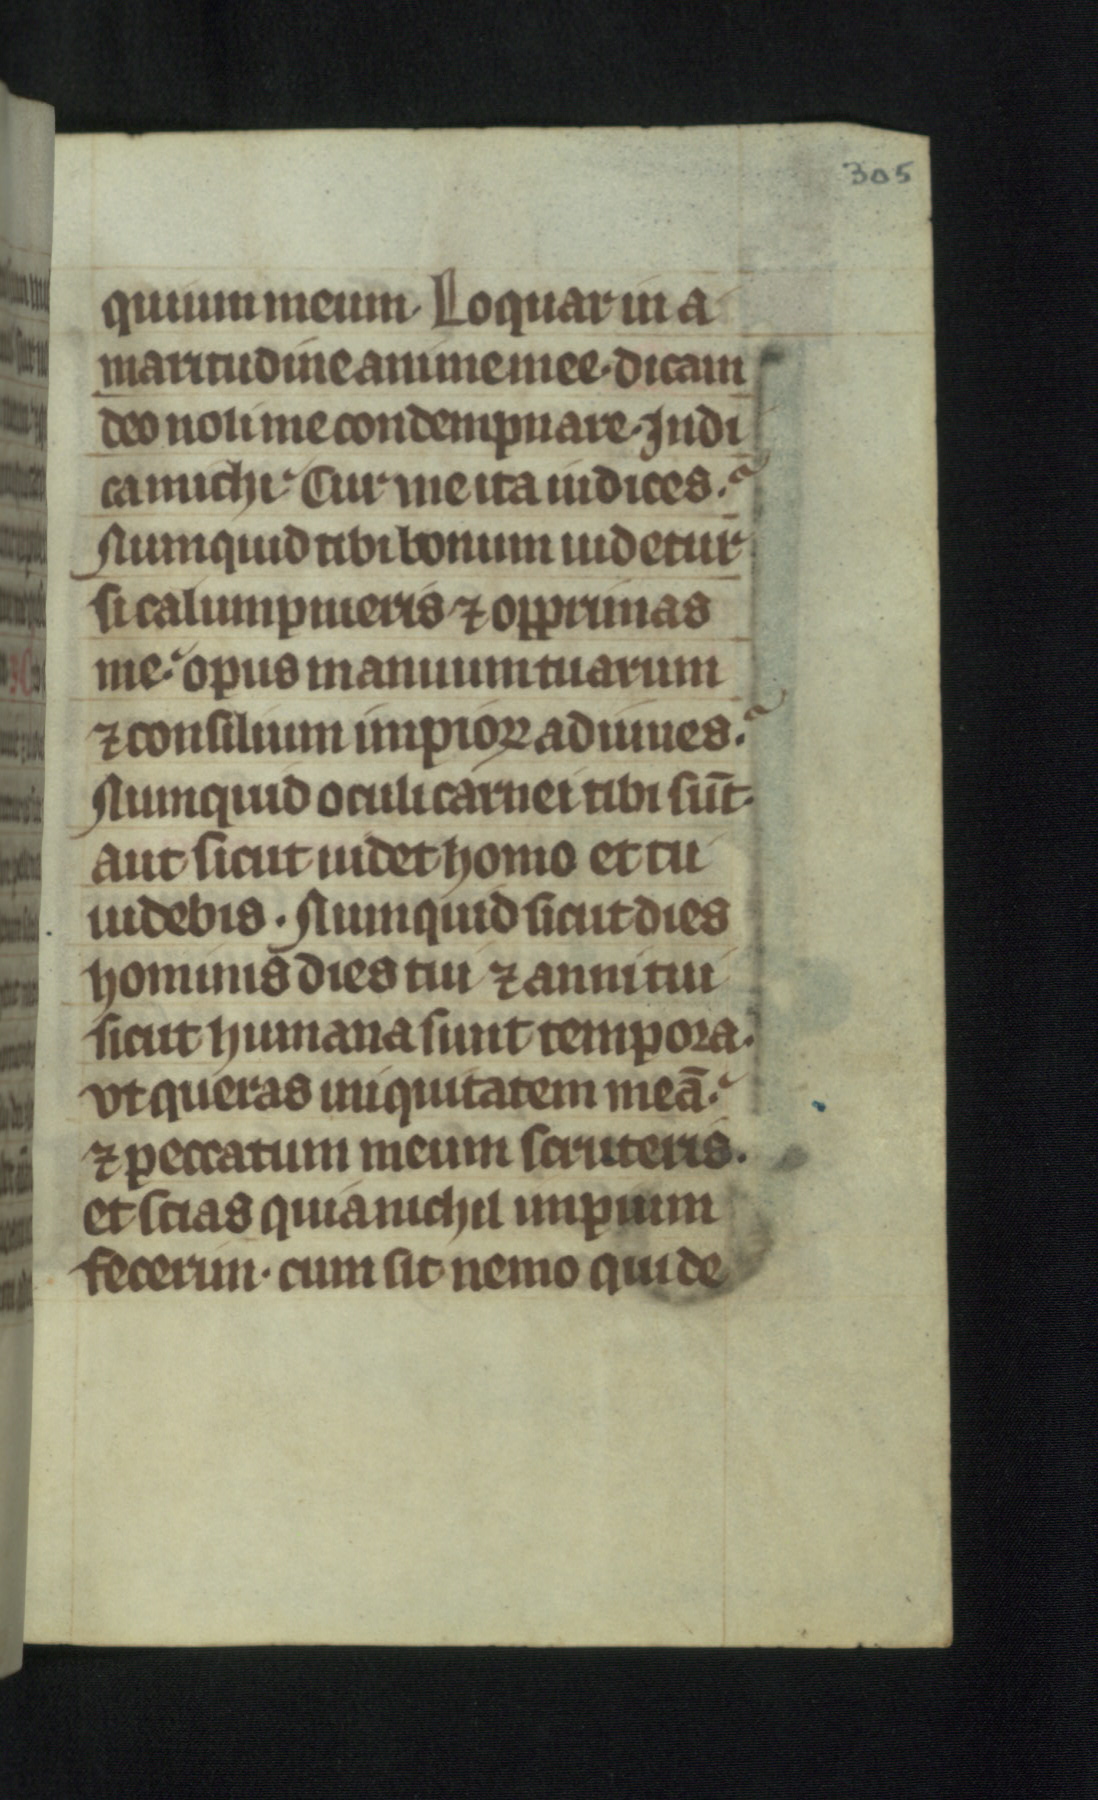 305
quium meum. Loquar in a
maritudine anime mee. dicam
deo noli me condempnare. Indi
ca michi cur me ita iudices.
Numquid tibi bonum uidetur
si calumpnieris ⁊ opprimas
me. opus manuum tuarum
⁊ consilium impioꝝ adiuues.
Numquid oculi carnei tibi sūt.
aut sicut uidet homo et tu
uidebis. Numquid sicut dies
hominis dies tui ⁊ anni tui
sicut humana sunt tempora.
vt queras iniquitatem meā.
⁊ peccatum meum scruteris.
et scias quia nichil impium
fecerim. cum sit nemo qui de